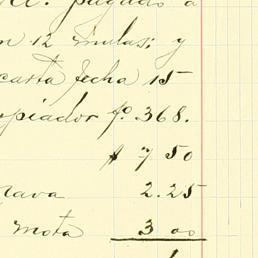 pagado a
12 mulas; y
carta fecha 15
copiador fo. 368.
$ 7 50
2.25
mota 3 00